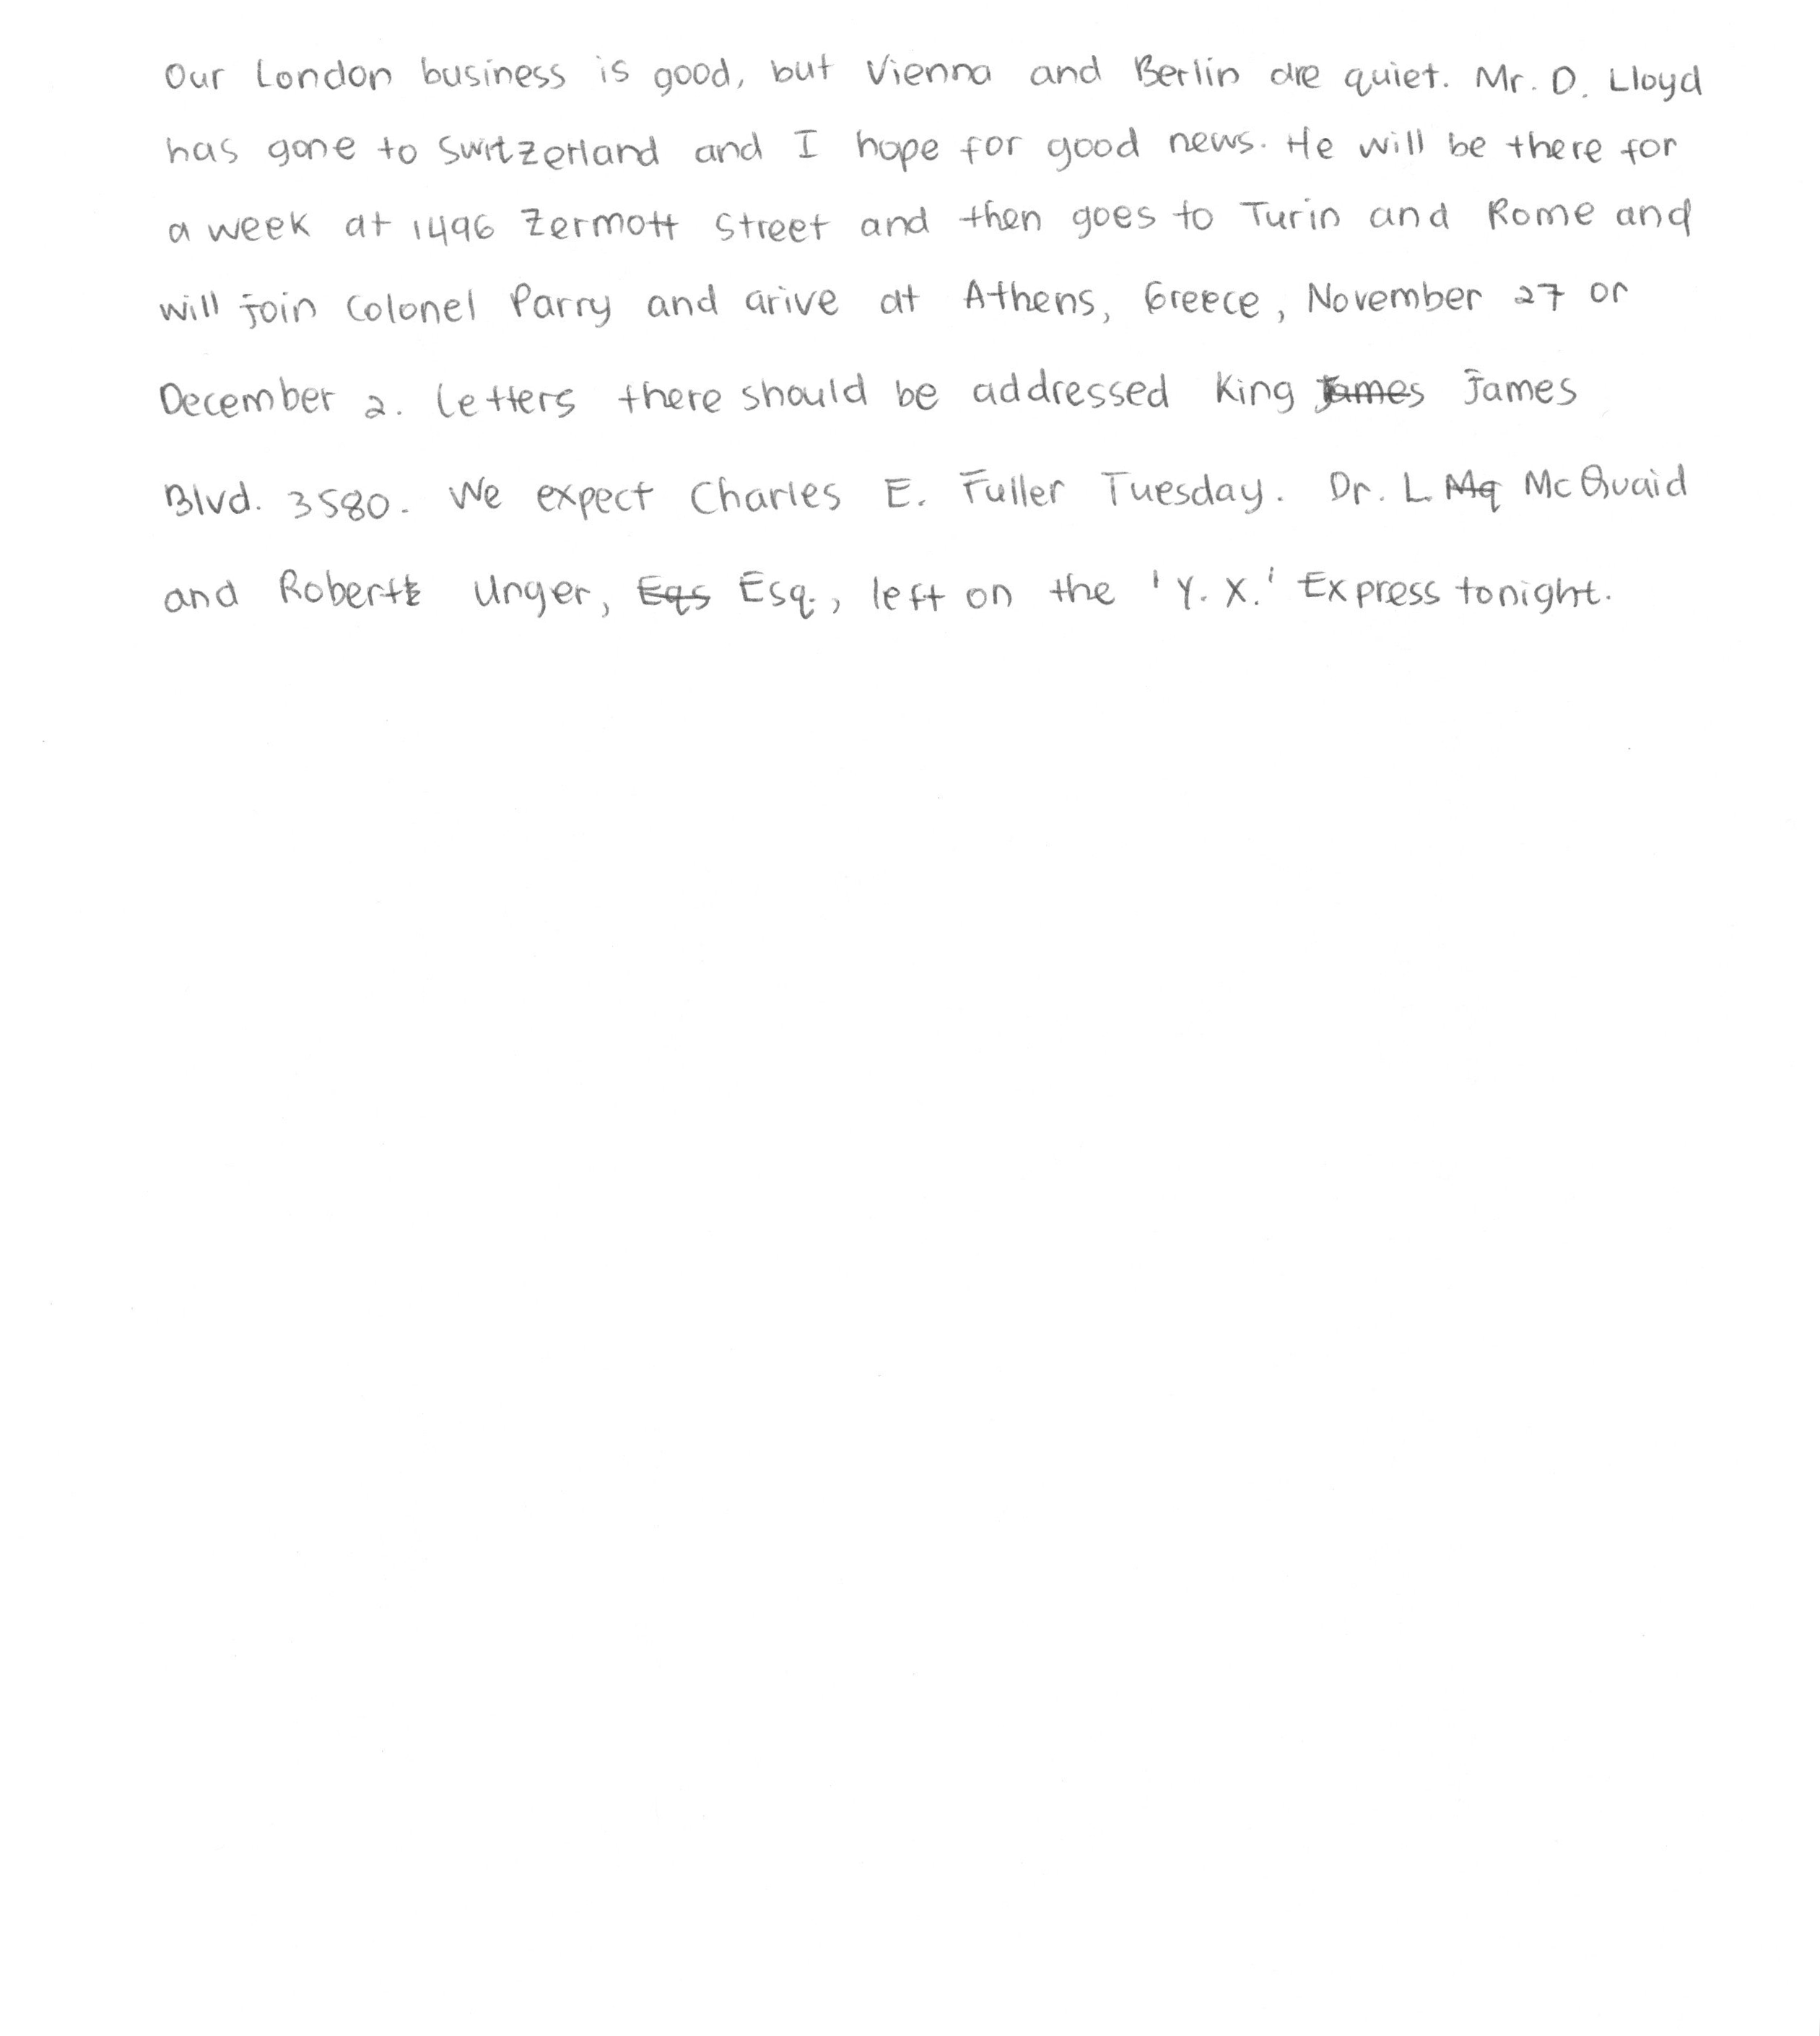 Our London business is good, but Vienna and Berlin are quiet. Mr. D. Lloyd
has gone to Switzerland and I hope for good news. He will be there for
a week at 1496 Zermott Street and then goes to Turin and Rome and
will join Colonel Parry and arive at Athens, Greece, November 27 or
December 2. Letters there should be addressed King James James
Blvd. 3580. We expect Charles E. Fuller Tuesday. Dr. L. Mq McQuaid
and Robert Unger, Eqs Esq., left on the 'Y. X.' Express tonight.